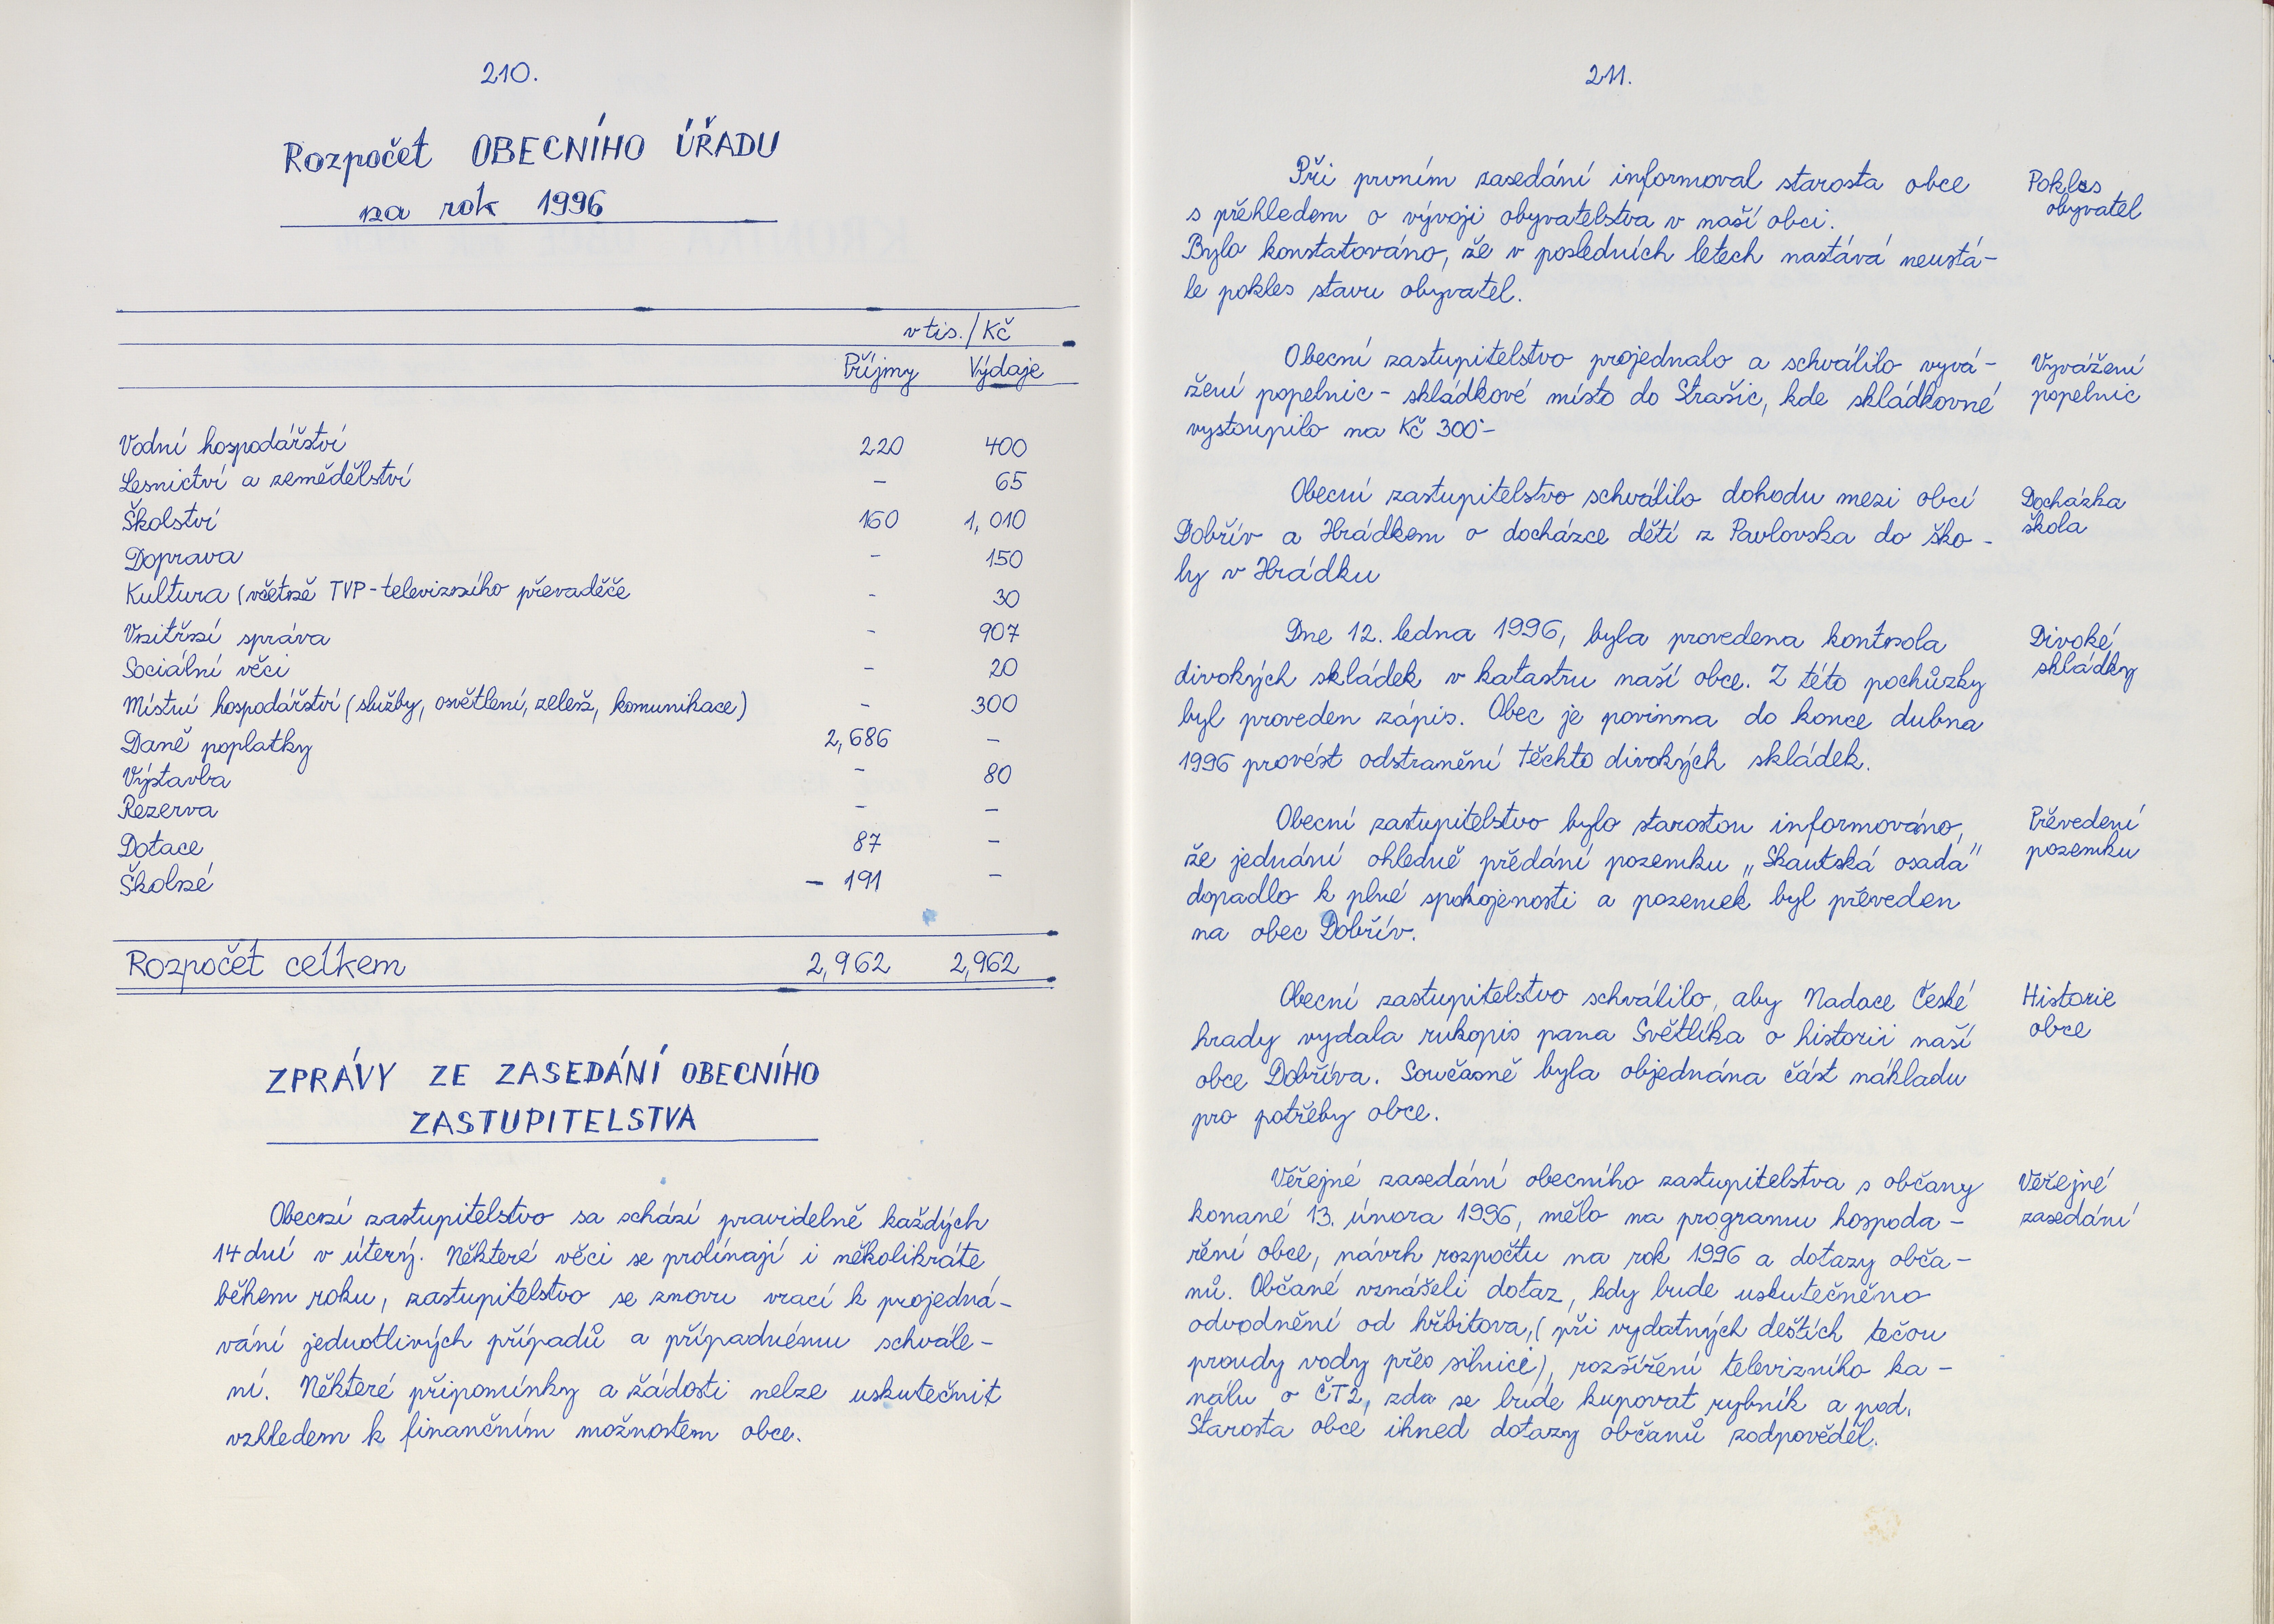 210.
Rozpočet OBECNÍHO ÚŘADU
na rok 1996
v tis./Kč
Příjmy Výdaje
Vodní hospodářství 220 400
Lesnictví a zemědělství - 65
Školství 160 1,010
Doprava - 150
Kultura (včetně TVP-televizního převaděče - 30
Vnitřní správa - 907
Sociální věci - 20
Místní hospodářství (služby, osvětlení, zeleň, komunikace) - 300
Daně poplatky 2,686 -
Výstavba - 80
Rezerva - -
Dotace 87 -
Školné - 191 -
Rozpočet celkem 2,962 2,962
ZPRÁVY ZE ZASEDÁNÍ OBECNÍHO
ZASTUPITELSTVA
Obecní zastupitelstvo sa schází pravidelně každých
14 dní v úterý. Některé věci se prolínají i několikráte
během roku, zastupitelstvo se znovu vrací k projedná-
vání jednotlivých případů a případnému schvále-
ní. Některé připomínky a žádosti nelze uskutečnit
vzhledem k finančním možnostem obce.
211.
Při prvním zasedání informoval starosta obce
s přehledem o vývoji obyvatelstva v naší obci.
Bylo konstatováno, že v posledních letech nastává neustá-
le pokles stavu obyvatel.
Pokles
obyvatel
Obecní zastupitelstvo projednalo a schválilo vyvá-
žení popelnic - skládkové místo do Strašic, kde skládkovné
vystoupilo na Kč 300-
Vyvážení
popelnic
Obecní zastupitelstvo schválilo dohodu mezi obcí
Dobřív a Hrádkem o docházce dětí z Pavlovska do ško-
ly v Hrádku
Docházka
škola
Dne 12. ledna 1996, byla provedena kontrola
divokých skládek v katastru naší obce. Z této pochůzky
byl proveden zápis. Obec je povinna do konce dubna
1996 provést odstranění těchto divokých skládek.
Divoké
skládky
Obecní zastupitelstvo bylo starostou informováno,
že jednání ohledně předání pozemku „Skautská osada"
dopadlo k plné spokojenosti a pozemek byl převeden
na obec Dobřív.
Převedení
pozemku
Obecní zastupitelstvo schválilo, aby Nadace České
hrady vydala rukopis pana Světlíka o historii naší
obce Dobříva. Současně byla objednána část nákladu
pro potřeby obce.
Historie
obce
Veřejné zasedání obecního zastupitelstva s občany
konané 13. února 1996, mělo na programu hospoda-
ření obce, návrh rozpočtu na rok 1996 a dotazy obča-
nů. Občané vznášeli dotaz, kdy bude uskutečněno
odvodnění od hřbitova, (při vydatných deštích tečou
proudy vody přes silnici), rozšíření televizního ka-
nálu o ČT2, zda se bude kupovat rybník a pod.
Starosta obce ihned dotazy občanů zodpověděl.
Veřejné
zasedání